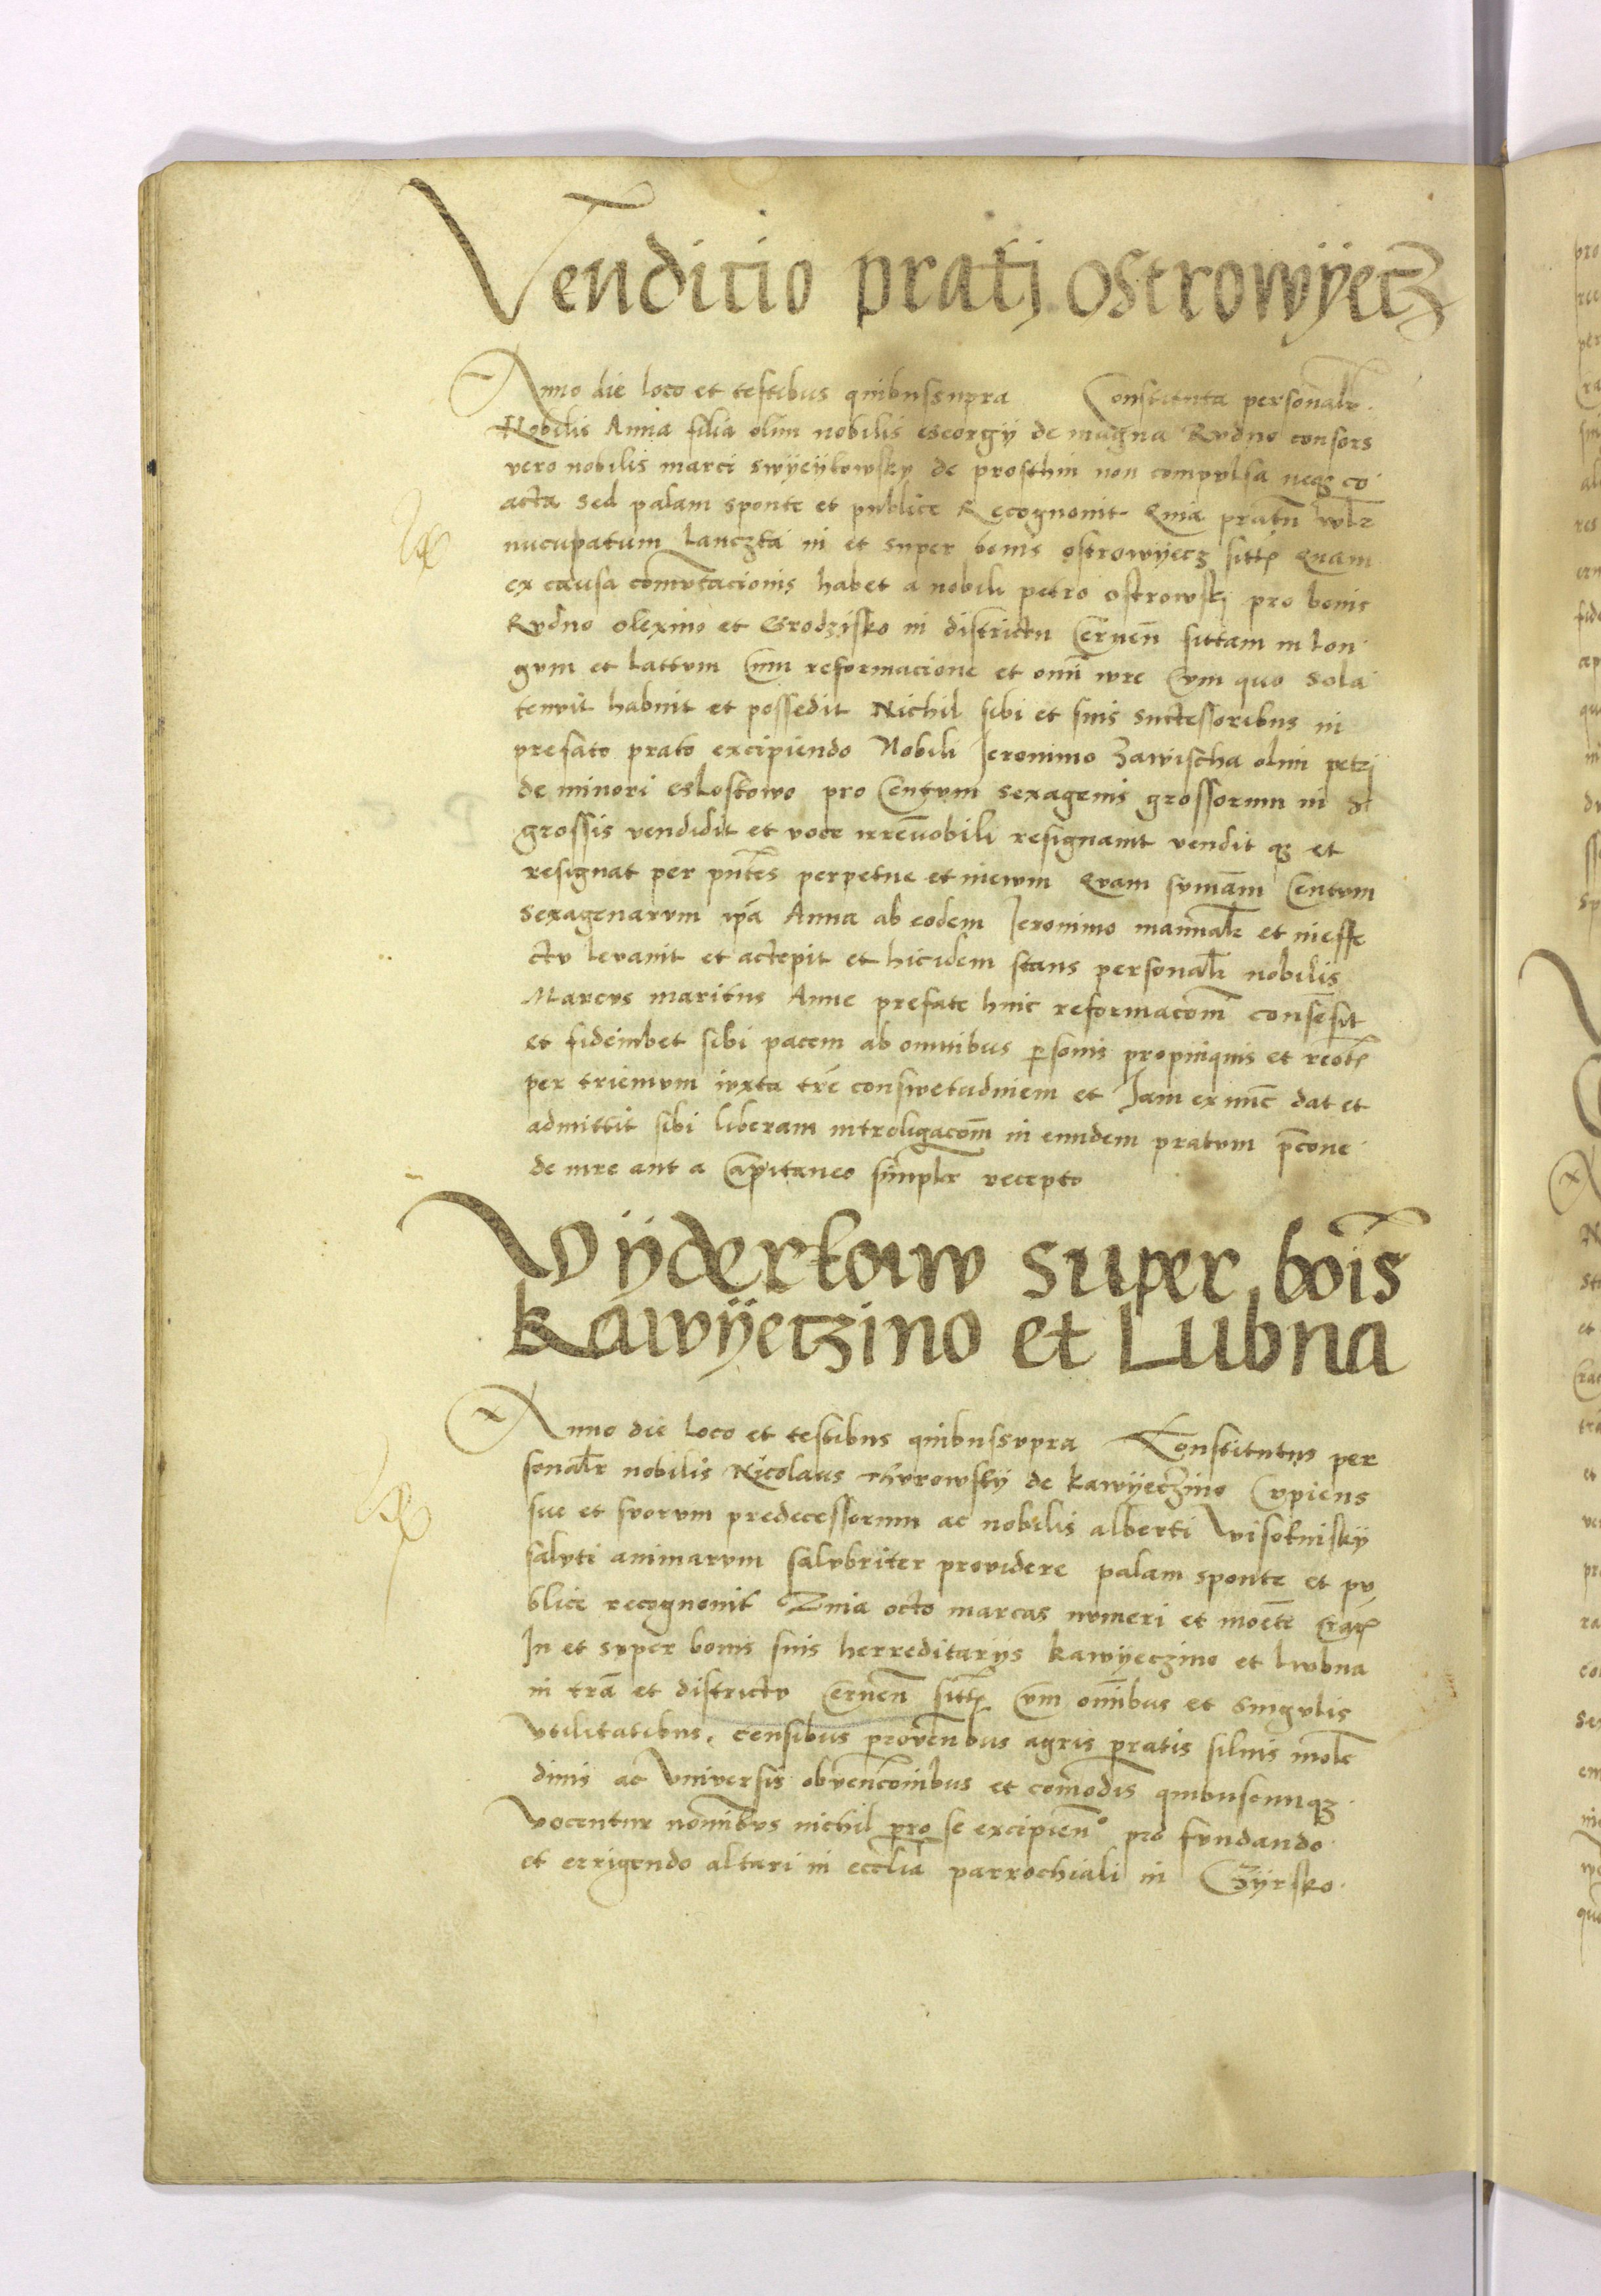 Venditio pratj ostrowÿecz
Anno die loco et testibus quibussupra Constituta personalr̄.
Nobilis Anna filia olim nobilis Georgÿ de magna Rvdno consors
vero nobilis marci swÿeÿkowsky de prosthin non compvlsa neqʒ co
acta sed palam sponte et publice Recognouit Quia pratū wlr̄
nucupatum Lanczka in et super bonis ostrowÿecz sitt Quam
ex causa comvtacionis habet a nobili petro ostrowskj pro bonis
Rvdno olexino et Grodzisko in districtu Cernen̄ sittam in lon
gvm et lattvm Cum reformacione et omī iure Cvm quo sola
tenvit habuit et possedit Nichil sibi et suis suctessoribus in
prefato prato excipiendo Nobili Jeronimo Zawischa olim petrj
de minori Glostowo pro Centvm sexagenis grossorum in
grossis vendidit et voce irreūobili resignauit vendit qʒ et
resignat per pn̄tes perpetue et inewm Qvam svmām Centvm
sexagenarvm ip̄a Anna ab eodem Jeronimo manualr̄ et ineffe
ctv levauit et actepit et hicidem stans personalr̄ nobilis
Marcvs maritus Anne prefate huic reformacōm consēsit
et fideiubet sibi pacem ab omnibus psonis propinquis et
per trienivm ivxta trē conswetudinem et Jam ex nūc dat et
admittit sibi liberam introligacōm in eundem pratvm p̄cone
de iure aut a Capitaneo simplr̄ recepto
Wÿderkaw super bōis
Kawÿeczino et Lubna
Anno die loco et testibus quibussvpra Constitutus per
sonalr̄ nobilis Nicolaus Thvrowskÿ de kawÿeczino Cvpiens
sue et svorvm predecessorum ac nobilis alberti wisotniskÿ
salvti animarvm salvbriter providere palam sponte et pv
blice recognouit Quia octo marcas nvmeri et moēte
In et svper bonis suis herreditarÿs kawÿeczino et lwbna
in trā et districtv Cernen̄ sitt Cvm om̄ibus et singvlis
vtilitatibus, censibus prouen̄bus agris pratis siluis mole
dinis ac Vniversis obvenc̄onibus et com̄odis quibuscunqʒ
vocentur nōinibvs nichil pro se excipienᵒ pro fvndando
et errigendo altari in eccl̄ia parrochiali in Gÿrsko